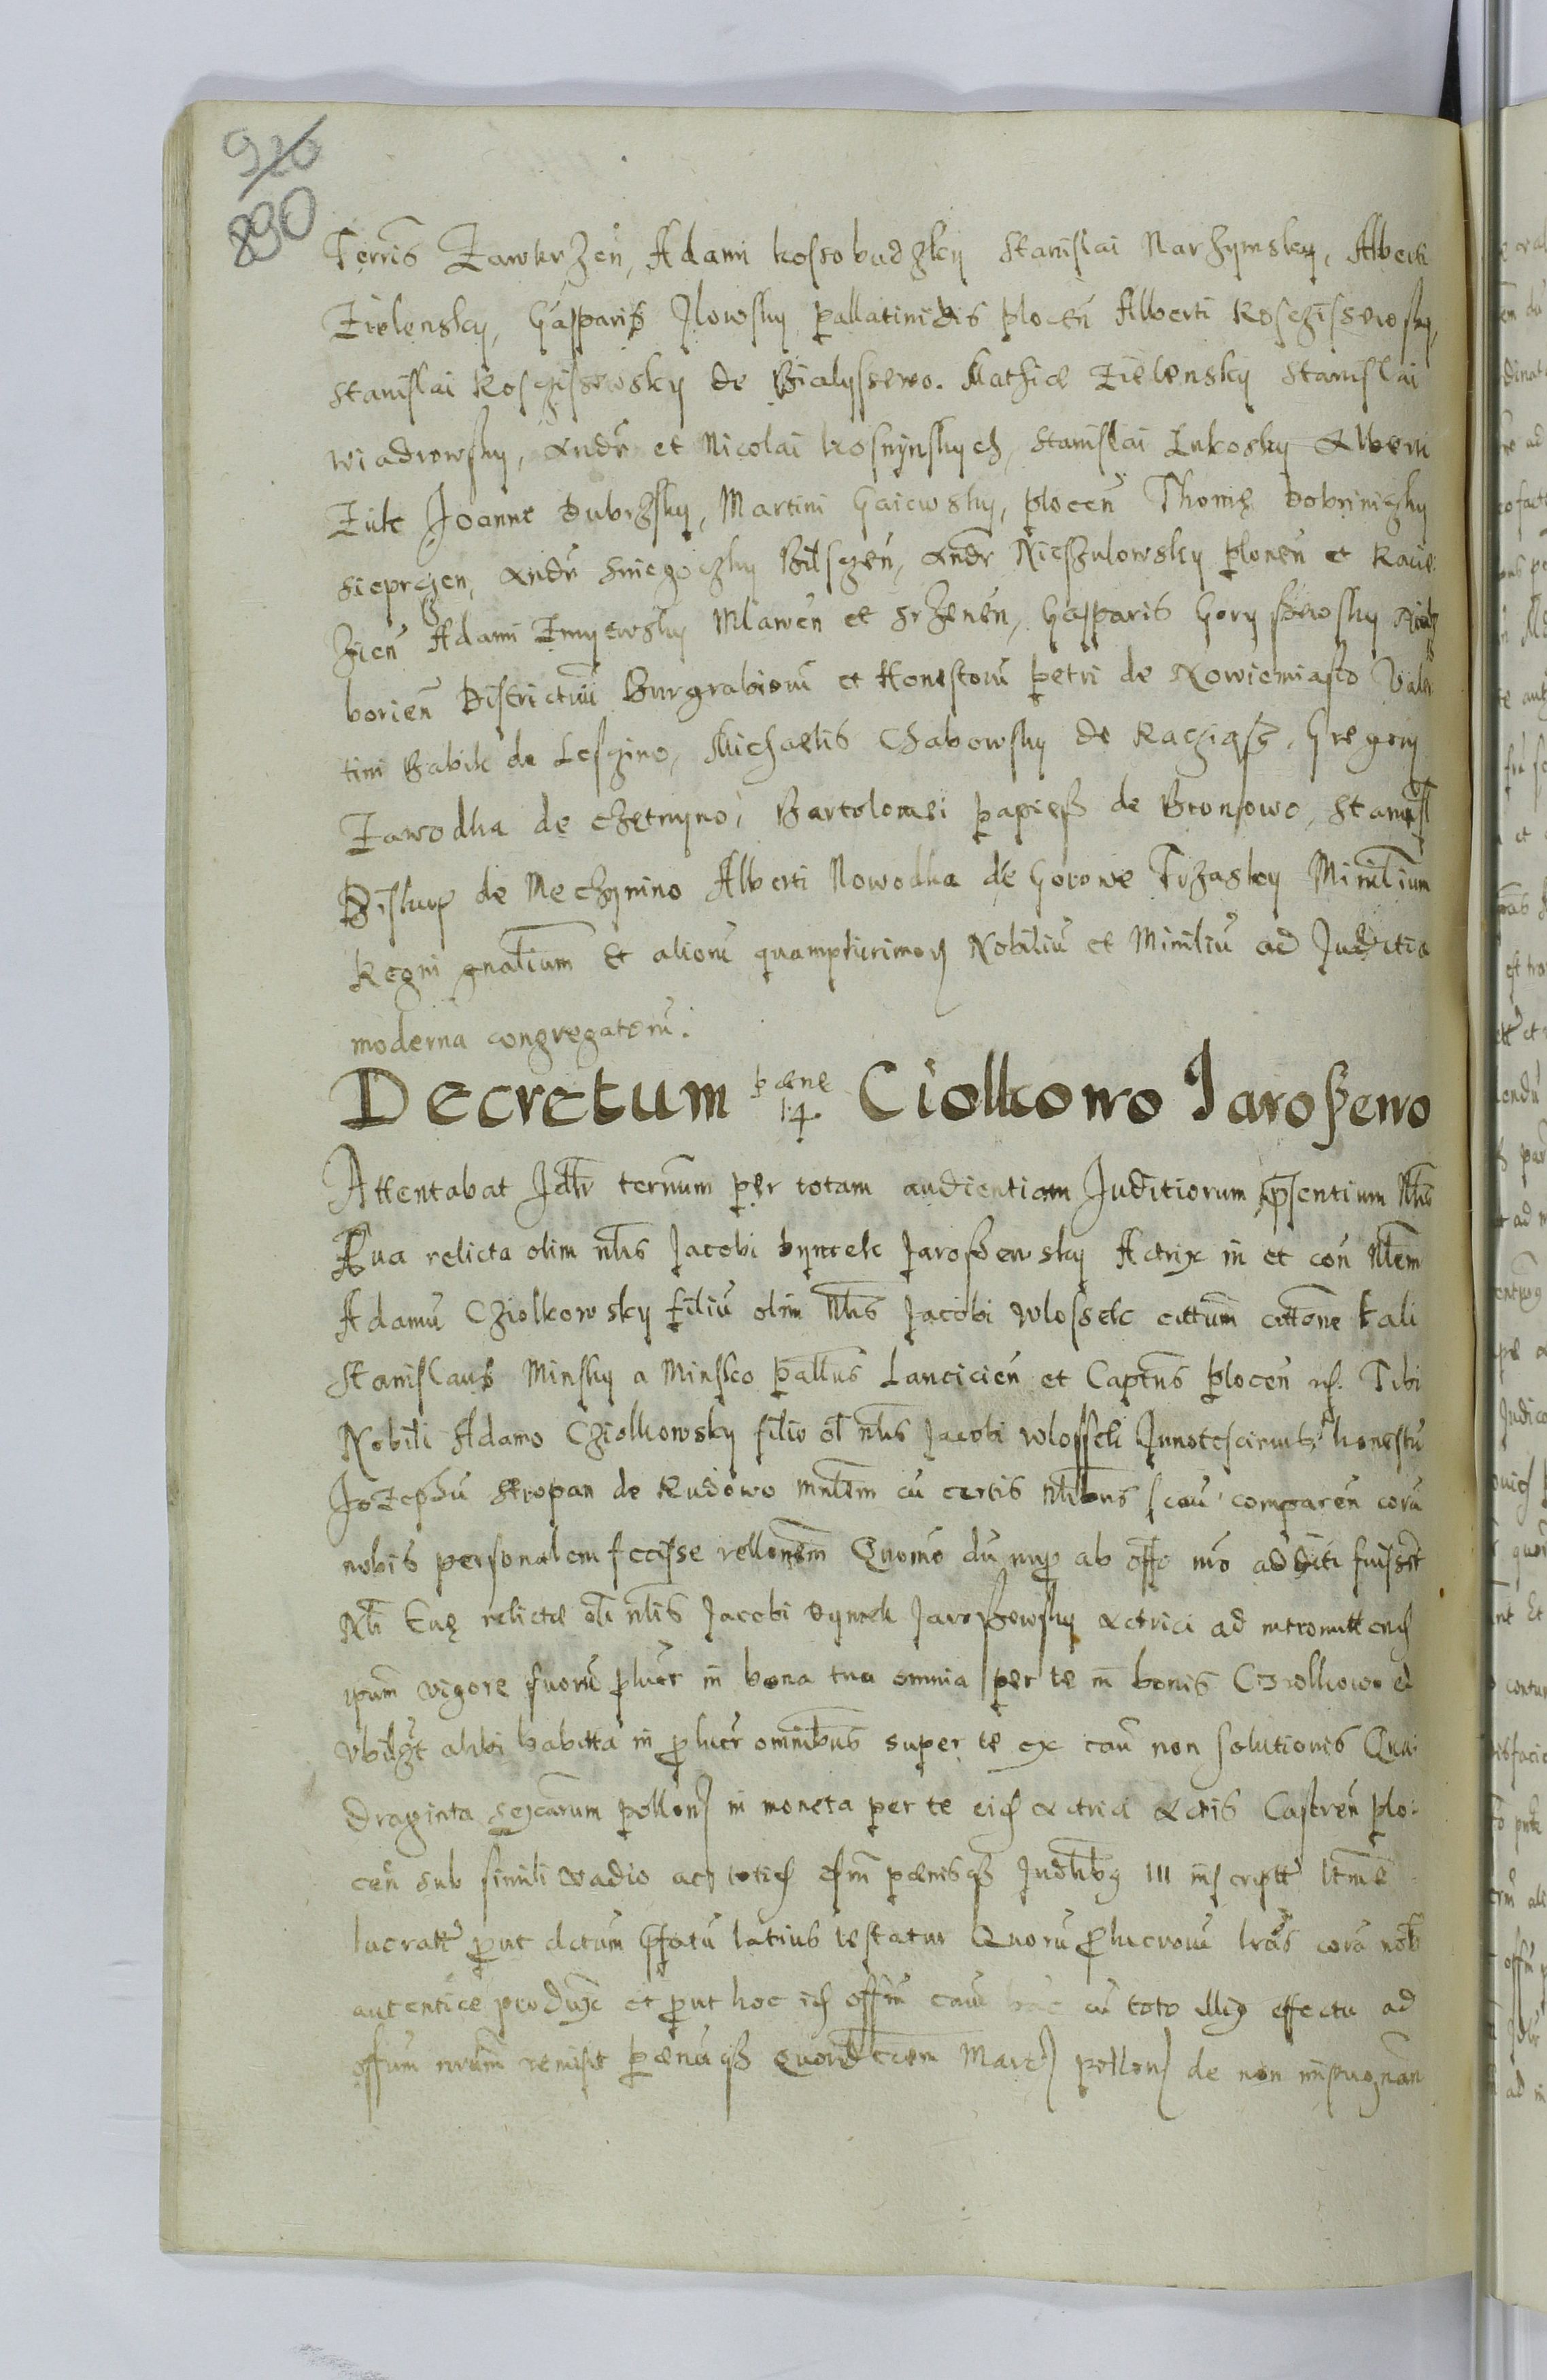 926
890
Terris Zawkrzeń, Adami kossobudzky Stanislai Narzymsky, Alberti
Zielensky, Gasparis Jlowsky pallatinidis ploceń Alberti Kosczissewsky,
Stanislai Kosczissewsky de Bialyssewo. Mathiæ Zielensky Stanislai
wiadrowsky, Andr̃ et Nicolai kosnynskych, Stanislai Lukosky Alberti
Zuk Joanne Dubrzsky, Martini Gaiewsky, ploceń Thomę Dobriniczky
sieprczen, Andr̃ Sniegoczky Bilsczeń, Andr̃ Nieszulowsky ploneń et Racią
zień Adami Zmyewsky Mlaweń et Srzeneń, Gasparis Goryszewsky Niedz
borień Districtuū Burgrabiorū et Honestorū petri de Nowiemiasto Valē
tini Babik de Lesczino, Michaelis Chabowsky de Racziąsz, Gregory
Zawodka de Czetnyno, Bartolomei papiesz de Bronsowo, Stanisl
Biskup de Meczynino Alberti Nowodka de Gorowe Trzasky Minilium
Regni gnalium et aliorū quamplurimorꝫ Nobiliū et Miniliū ad Juditia
moderna congregatorū.
Decretum pæne 14 Ciolkowo Jaroszewo
Attentabat Jdtr ternum per totam audientiam Juditiorum pñsentium Nlis
Eua relicta olim nlis Jacobi bynrek Jaroszewsky Actrix in et coñ Nlem
Adamū Cziolkowsky filiū olim Nlis Jacobi wlossek cittum cittone tali
Stanislaus Minsky a Minsko pallnus Lancicień et Captnus ploceń rc. Tibi
Nobili Adamo Cziolkowsky filio ol nlis Jacobi wlossek Jnnotescimus honestū
Jozephū Stropan de Rudowo mnlem cū certis nlibus scaū compareń corā
nobis personalem fecisse rellonem Quomō dū nup ab offo nro additi fuissēt
Nli Euę relictæ oli nlis Jacobi Bynrek Jaroszewsky actrici ad intromittend
ipam vigore suorū plucr in bona tua omnia per te in bonis Cziolkowo et
vbilgt alibi habitta in plucr omnibus super te ex caū non solutionis Qua-
draginta sexcarum pollonꝫ in moneta per te eid actrici actis Castreń plo-
ceń sub simili vadio ac totid esm pænisqz Judlibꝫ III inscriptt ltme
lucratt put actum pfatū latius testatur Quorū plucrorū lras corā nob
autenticæ produxit et put hoc id offm caū hac cū toto illiꝫ effectu ad
offum nrum remisit pænaqz quordecem Marcꝫ pollonꝫ de non impugnan